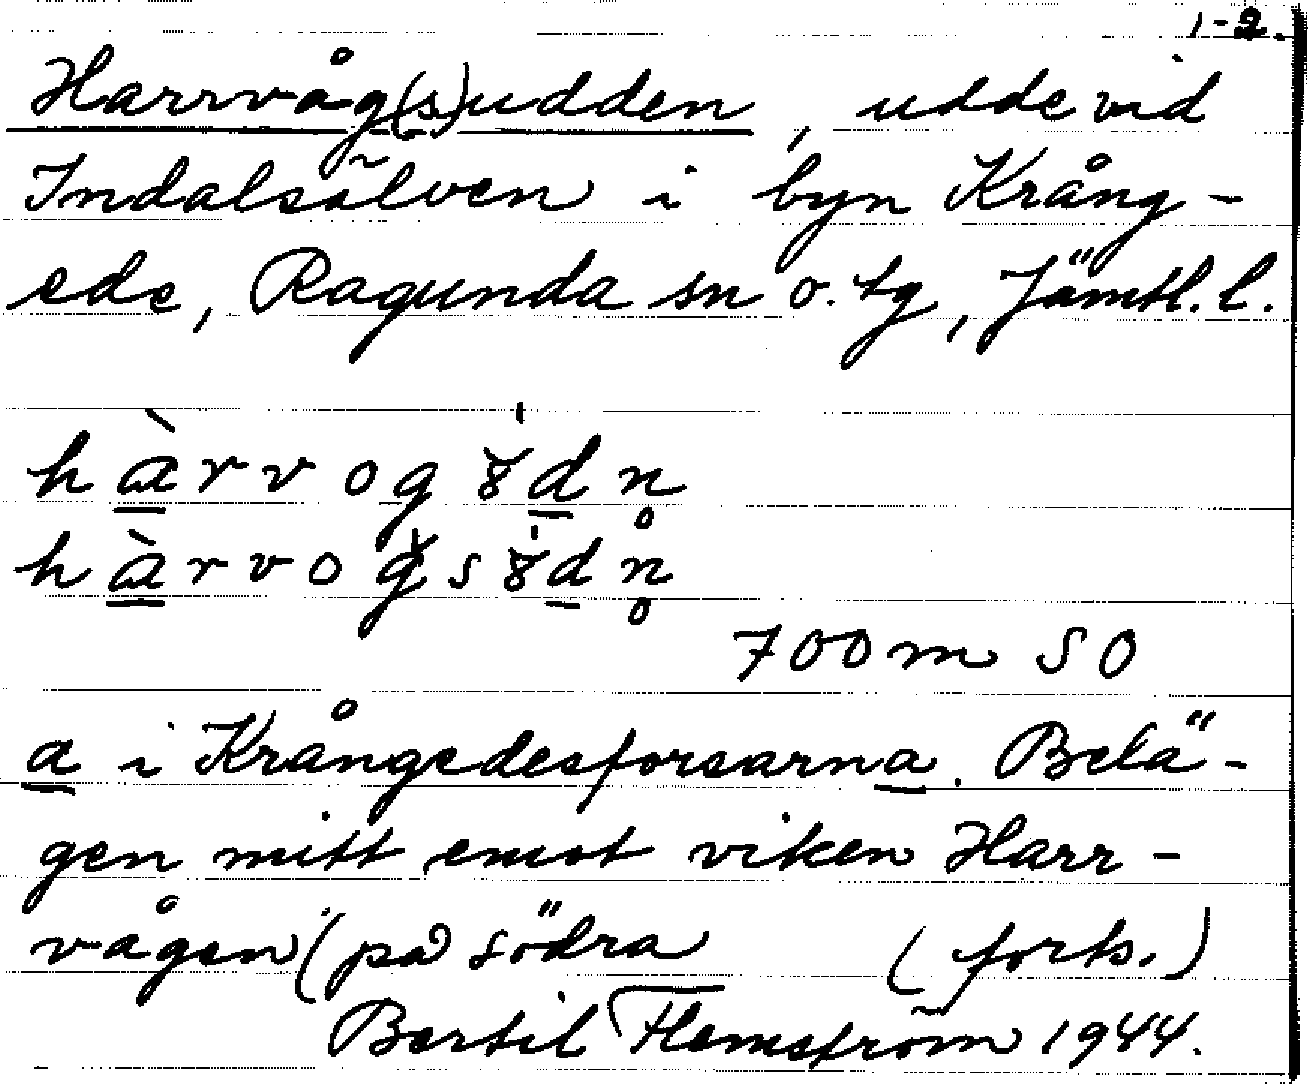 1-2.
Harrvåg(s)udden, udde vid
Indalsälven i byn Kräng-
ede, Ragunda sn o. tg, Jämtl. l.
hàrvogɤdn̥
hàrvogsɤdn̥
700 m SO
a i Krångedesforsarna. Belä-
gen mitt emot viken Harr-
vågen (på södra (forts.)
Bertil Flemström 1944.